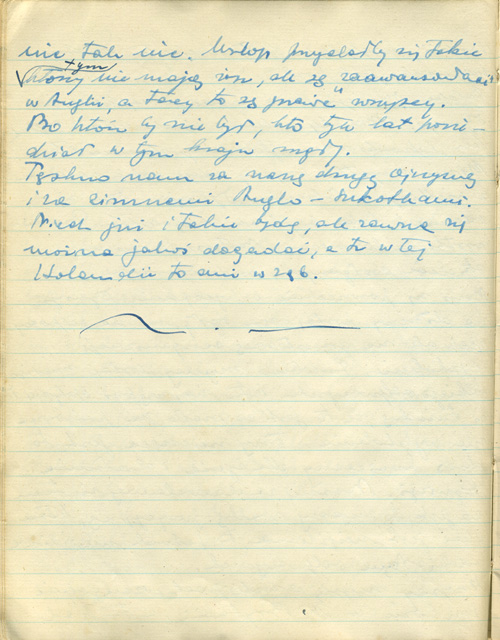 nie tak nie. Urlop przydałby się także
tym
którzy nie mają żon, ale są zaawansowani
w Anglii, a tacy to są prawie wszyscy.
Bo któż by nie był, kto tyle lat posie-
dział w tym kraju mgły.
Tęskno nam za naszą drugą ojczyzną
i za zimnemi Anglo-Szkotkami.
Niech już i takie będą, ale zawsze się
można jakoś dogadać, a tu w tej
Holandii to ani w ząb.